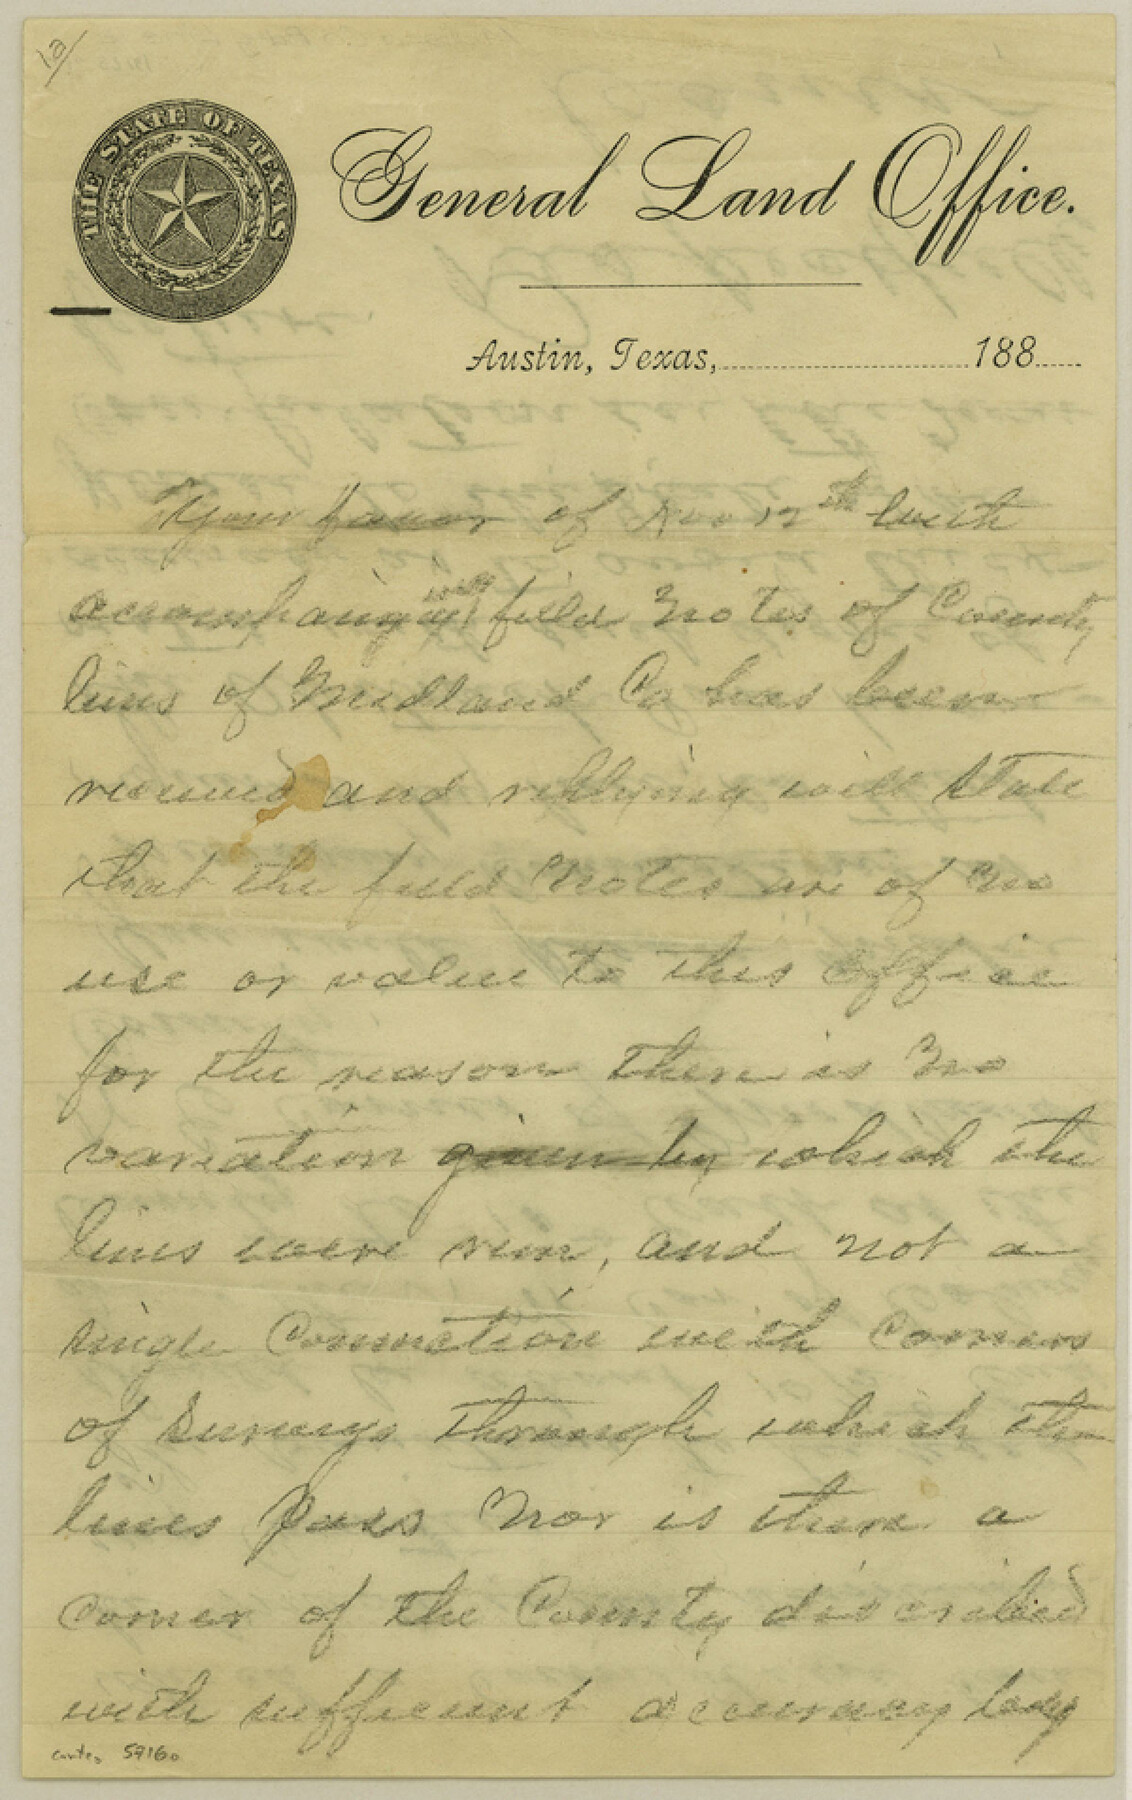 12/
THE STATE OF TEXAS
General Land Office.
Austin, Texas, 188
Your favor of Nov 12th with
accompaning field Notes of County
lines of Midland Co has been
received and replying will state
that the field Notes are of no
use or value to this office
for the reason there is no
variation given by which the
lines were run, and not a
single connection with corners
of surveys through which the
lines pass Nor is there a
corner of the County discribed
with sufficient accuracy
counter 59160